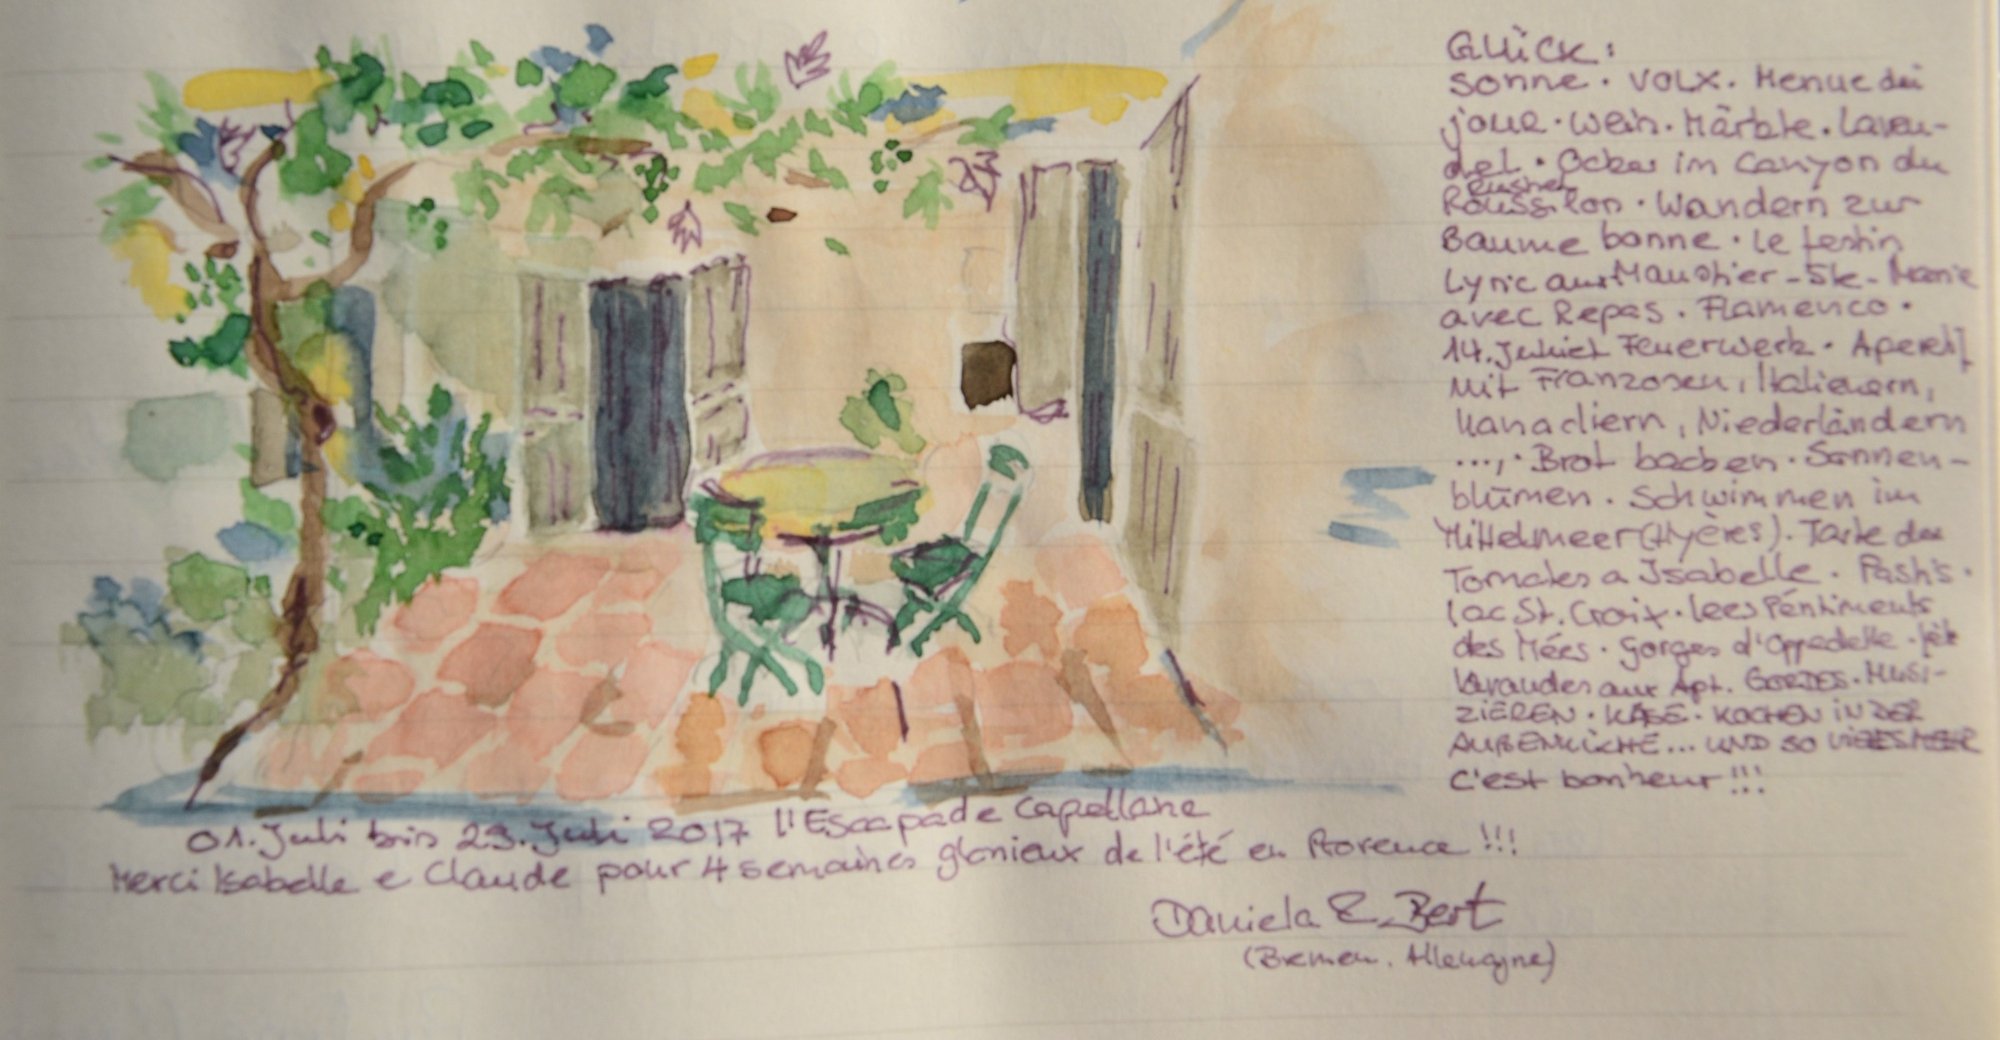 GLÜCK:
Sonne · VOLX · Menue du
jour · Wein · Märkte · Laven-
del · Ocker im Canyon du
Roussilon · Wandern zur
Baume bonne · Le festin
Lyric aus Mauohier - Ste - Marie
avec Repas · Flamenco ·
14. Juliet Feuerwerk · Aperetif
mit Franzosen, Italienern,
Kanadiern, Niederländern
..., · Brot backen · Sonnen-
blumen · Schwimmen im
Mittelmeer (Hyères) · Tarte de
Tomates a Isabelle · Pastis ·
Lac St. Croix · Lees Péntiments
des Mées · Gorges d'Oppedette ·
aux Apt. GORDES · MUSI-
ZIEREN · KÄSE · KOCHEN IN DER
AUßENKÜCHE... UND SO VIELES MEHR
C'est bonheur!!!
01. Juli bis 29. Juli 2017 l'Escapade Capellane
Merci Isabelle e Claude pour 4 semaines glorieux de l'été en Provence!!!
Daniela & Bert
(Bremen. Allemagne)